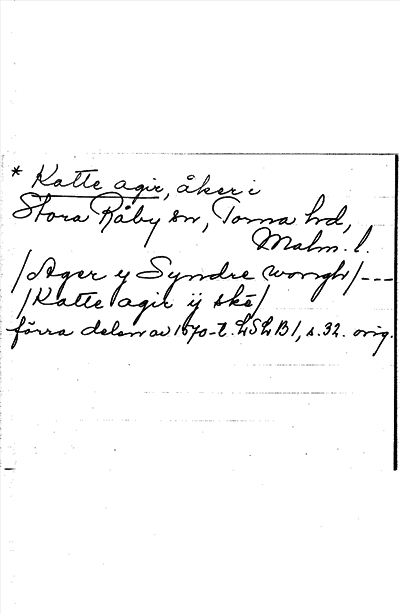 * Katte agir, åker i
Stora Råby sn, Torna hd,
Malm. l.
/Ager y Syndre wongh/---
/Katte agir ij skè/
förra delen av 1570-t. LSLB 1, s. 32. orig.